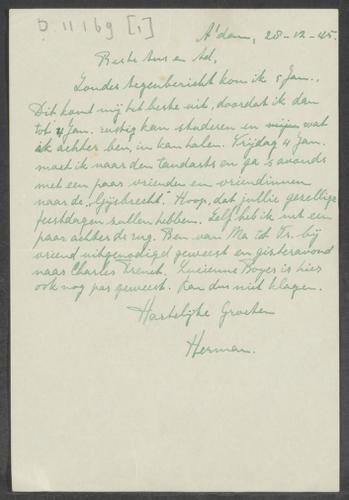 D 11169 [1]
A'dam, 28-12-45.
Beste Ans en Ad,
Zonder tegenbericht kom ik 5 Jan..
Dit komt mij het beste uit, doordat ik dan
tot 4 Jan. rustig kan studeren en mijn wat
ik achter ben, in kan halen. Vrijdag 4 Jan.
moet ik naar den tandarts en ga 's avonds
met een paar vrienden en vriendinnen
naar de "Gijsbrecht". Hoop, dat jullie gezellige
feestdagen zullen hebben. Zelf heb ik net een
paar achter de rug. Ben van Ma tot Vr. bij
vriend uitgenodigd geweest en gisteravond
naar Charles Trenet. Lucienne Boyer is hier
ook nog pas geweest. Kan dus niet klagen.
Hartelijke Groeten
Herman.